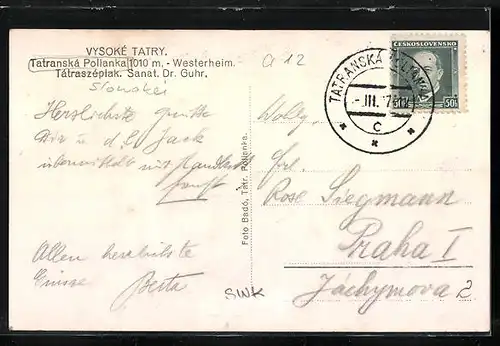 VYSOKÉ TATRY.
Tatranská Polianka 1010 m. - Westerheim.
Tátraszéplak. Sanat. Dr. Guhr.
Slowakei
a 12
Herzlichste
Dir u d. L. Jack
übermittelt mit
Allen herzlichste
Grüsse Berta
Foto Badó, Tatr. Polianka.
SWK
TATRANSKÁ POLIANKA
-.III.37
C
ČESKOSLOVENSKO
50h
Wolly.
Frl.
Rose Siegmann
Praha I
Jáchymova 2